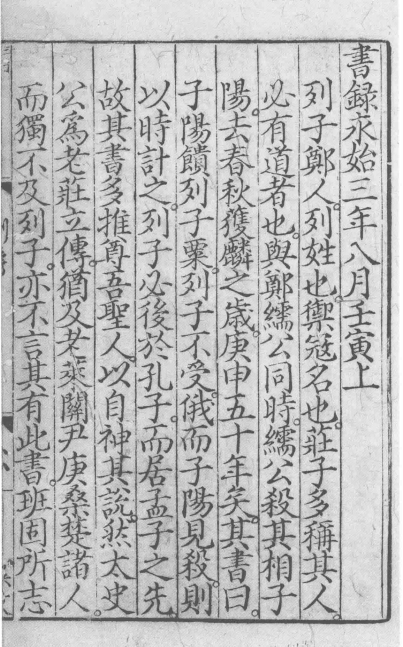 書録永始三年八月壬寅上
列子鄭人列姓也禦冦名也莊子多稱其人
必有道者也與鄭繻公同時繻公殺其相子
陽去春秋獲麟之歲庚申五十年矣其書曰
子陽饋列子粟列子不受俄而子陽見殺則
以時計之列子必後於孔子而居孟子之先
故其書多推尊吾聖人以自神其説然太史
公爲老莊立傳猶及老萊關尹庚桑楚諸人
而獨不及列子亦不言其有此書班固所志